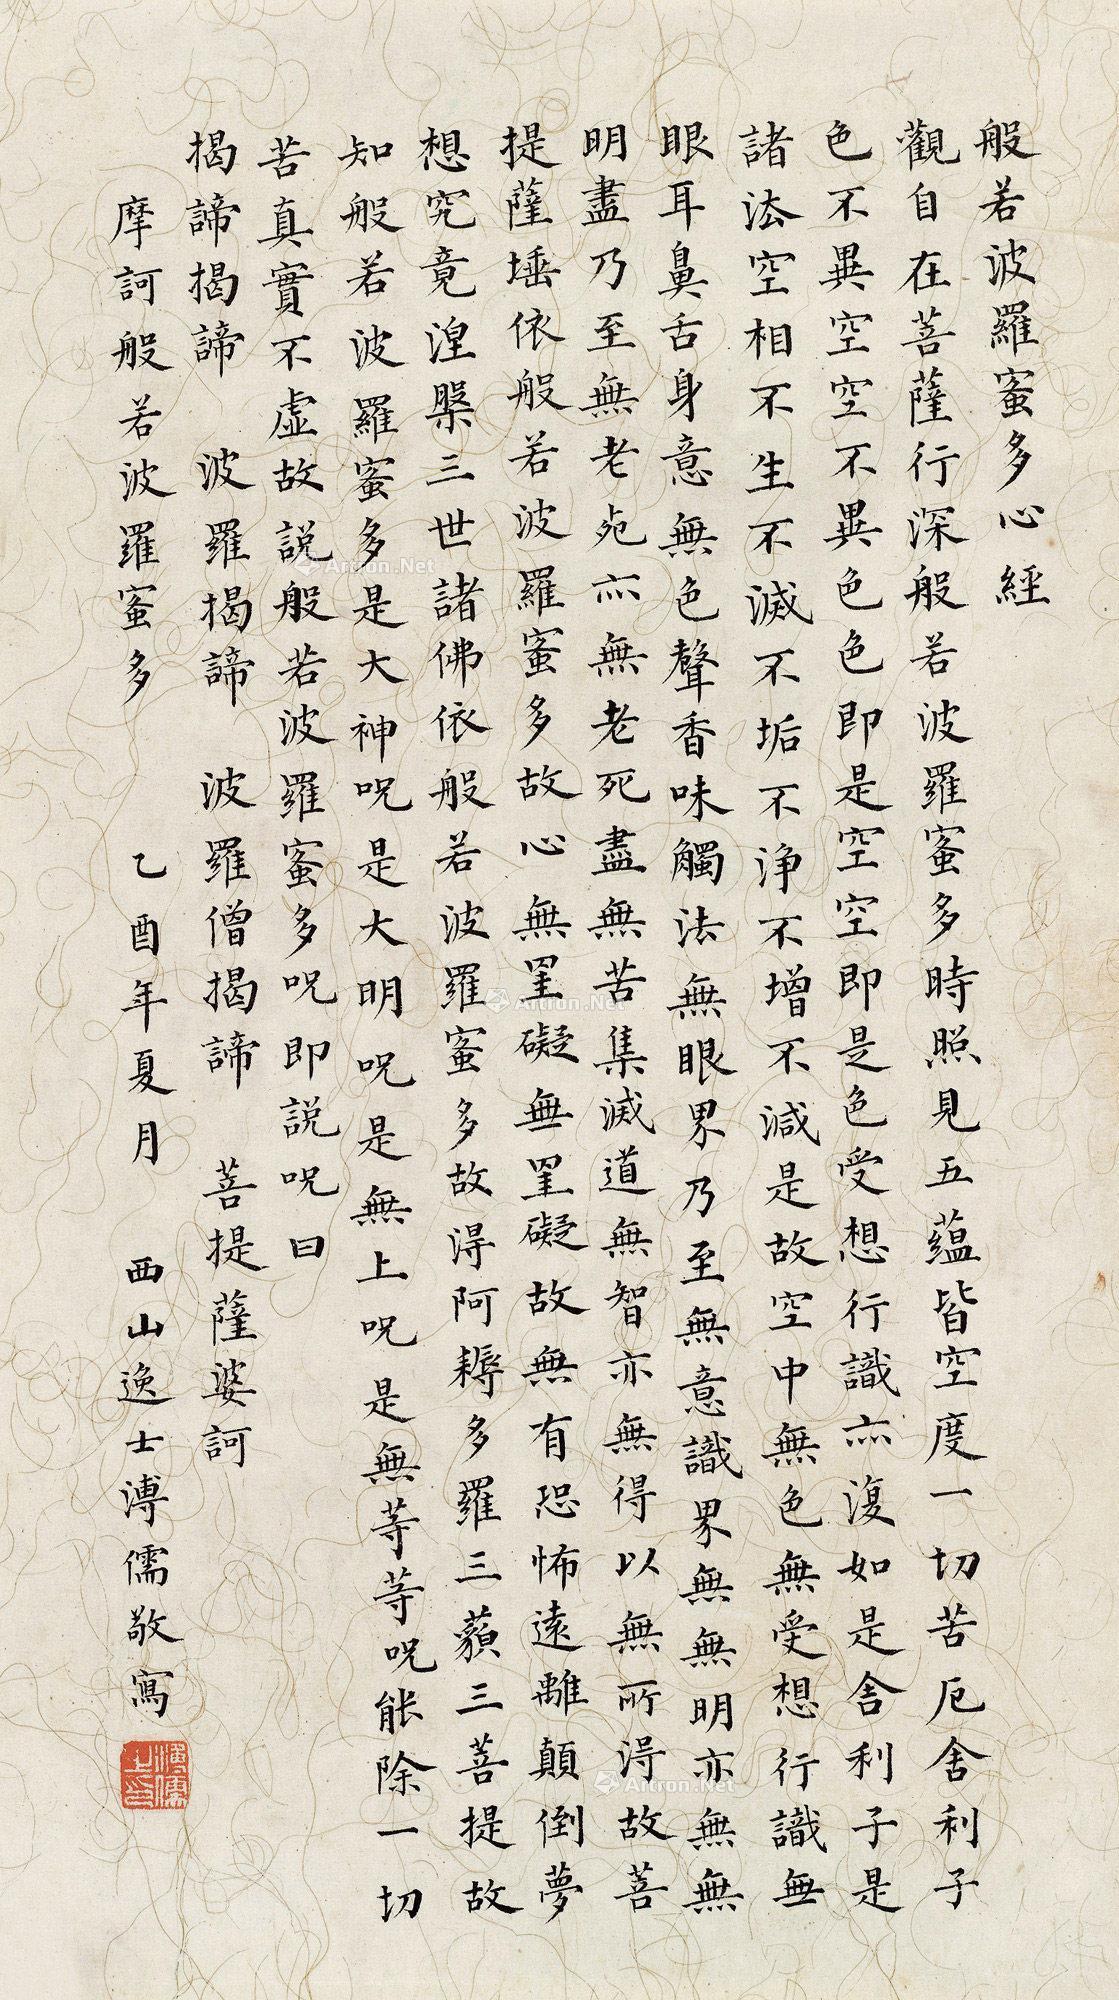 般若波羅蜜多心經
觀自在菩薩行深般若波羅蜜多時照見五蘊皆空度一切苦厄舍利子
色不異空空不異色色即是空空即是色受想行識亦復如是舍利子是
諸法空相不生不滅不垢不淨不增不減是故空中無色無受想行識無
眼耳鼻舌身意無色聲香味觸法無眼界乃至無意識界無無明亦無無
明盡乃至無老死亦無老死盡無苦集滅道無智亦無得以無所得故菩
提薩埵依般若波羅蜜多故心無罣礙無罣礙故無有恐怖遠離顛倒夢
想究竟涅槃三世諸佛依般若波羅蜜多故得阿耨多羅三藐三菩提故
知般若波羅蜜多是大神呪是大明呪是無上呪是無等等呪能除一切
苦真實不虛故說般若波羅蜜多呪即說呪曰
揭諦揭諦 波羅揭諦 波羅僧揭諦 菩提薩婆訶
摩訶般若波羅蜜多 乙酉年夏月 西山逸士溥儒敬寫
溥儒之印
Artron.Net
Artron.Net
Artron.Net